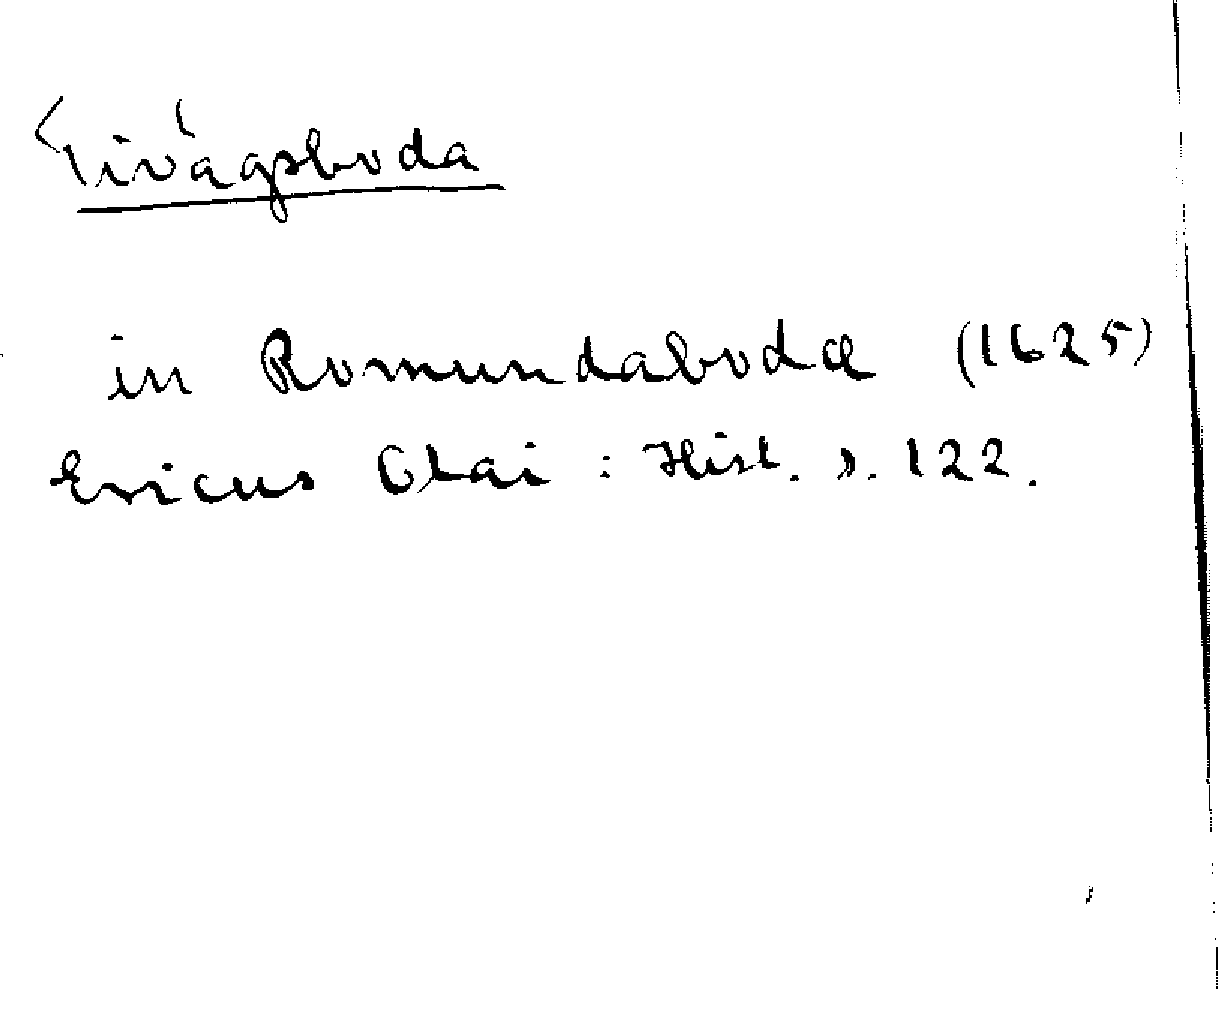 Tivägsboda
in Romundaboda (1625)
Ericus Olai : Hist. s. 122.